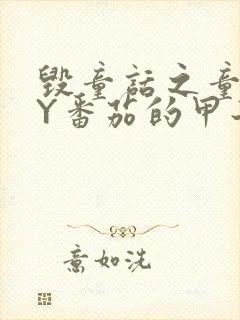 毁童话之童
Y番茄的甲
意如洗